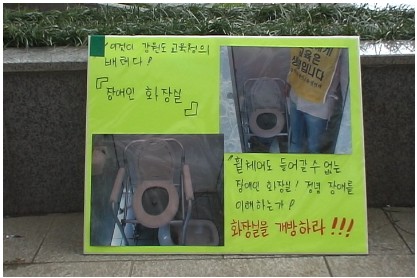 "이것이 강원도 교육청의
배려다!
『장애인 화장실』
교육은
입니다
"휠체어도 들어갈 수 없는
장애인 화장실! 정녕 장애를
이해하는가?
화장실을 개방하라!!!